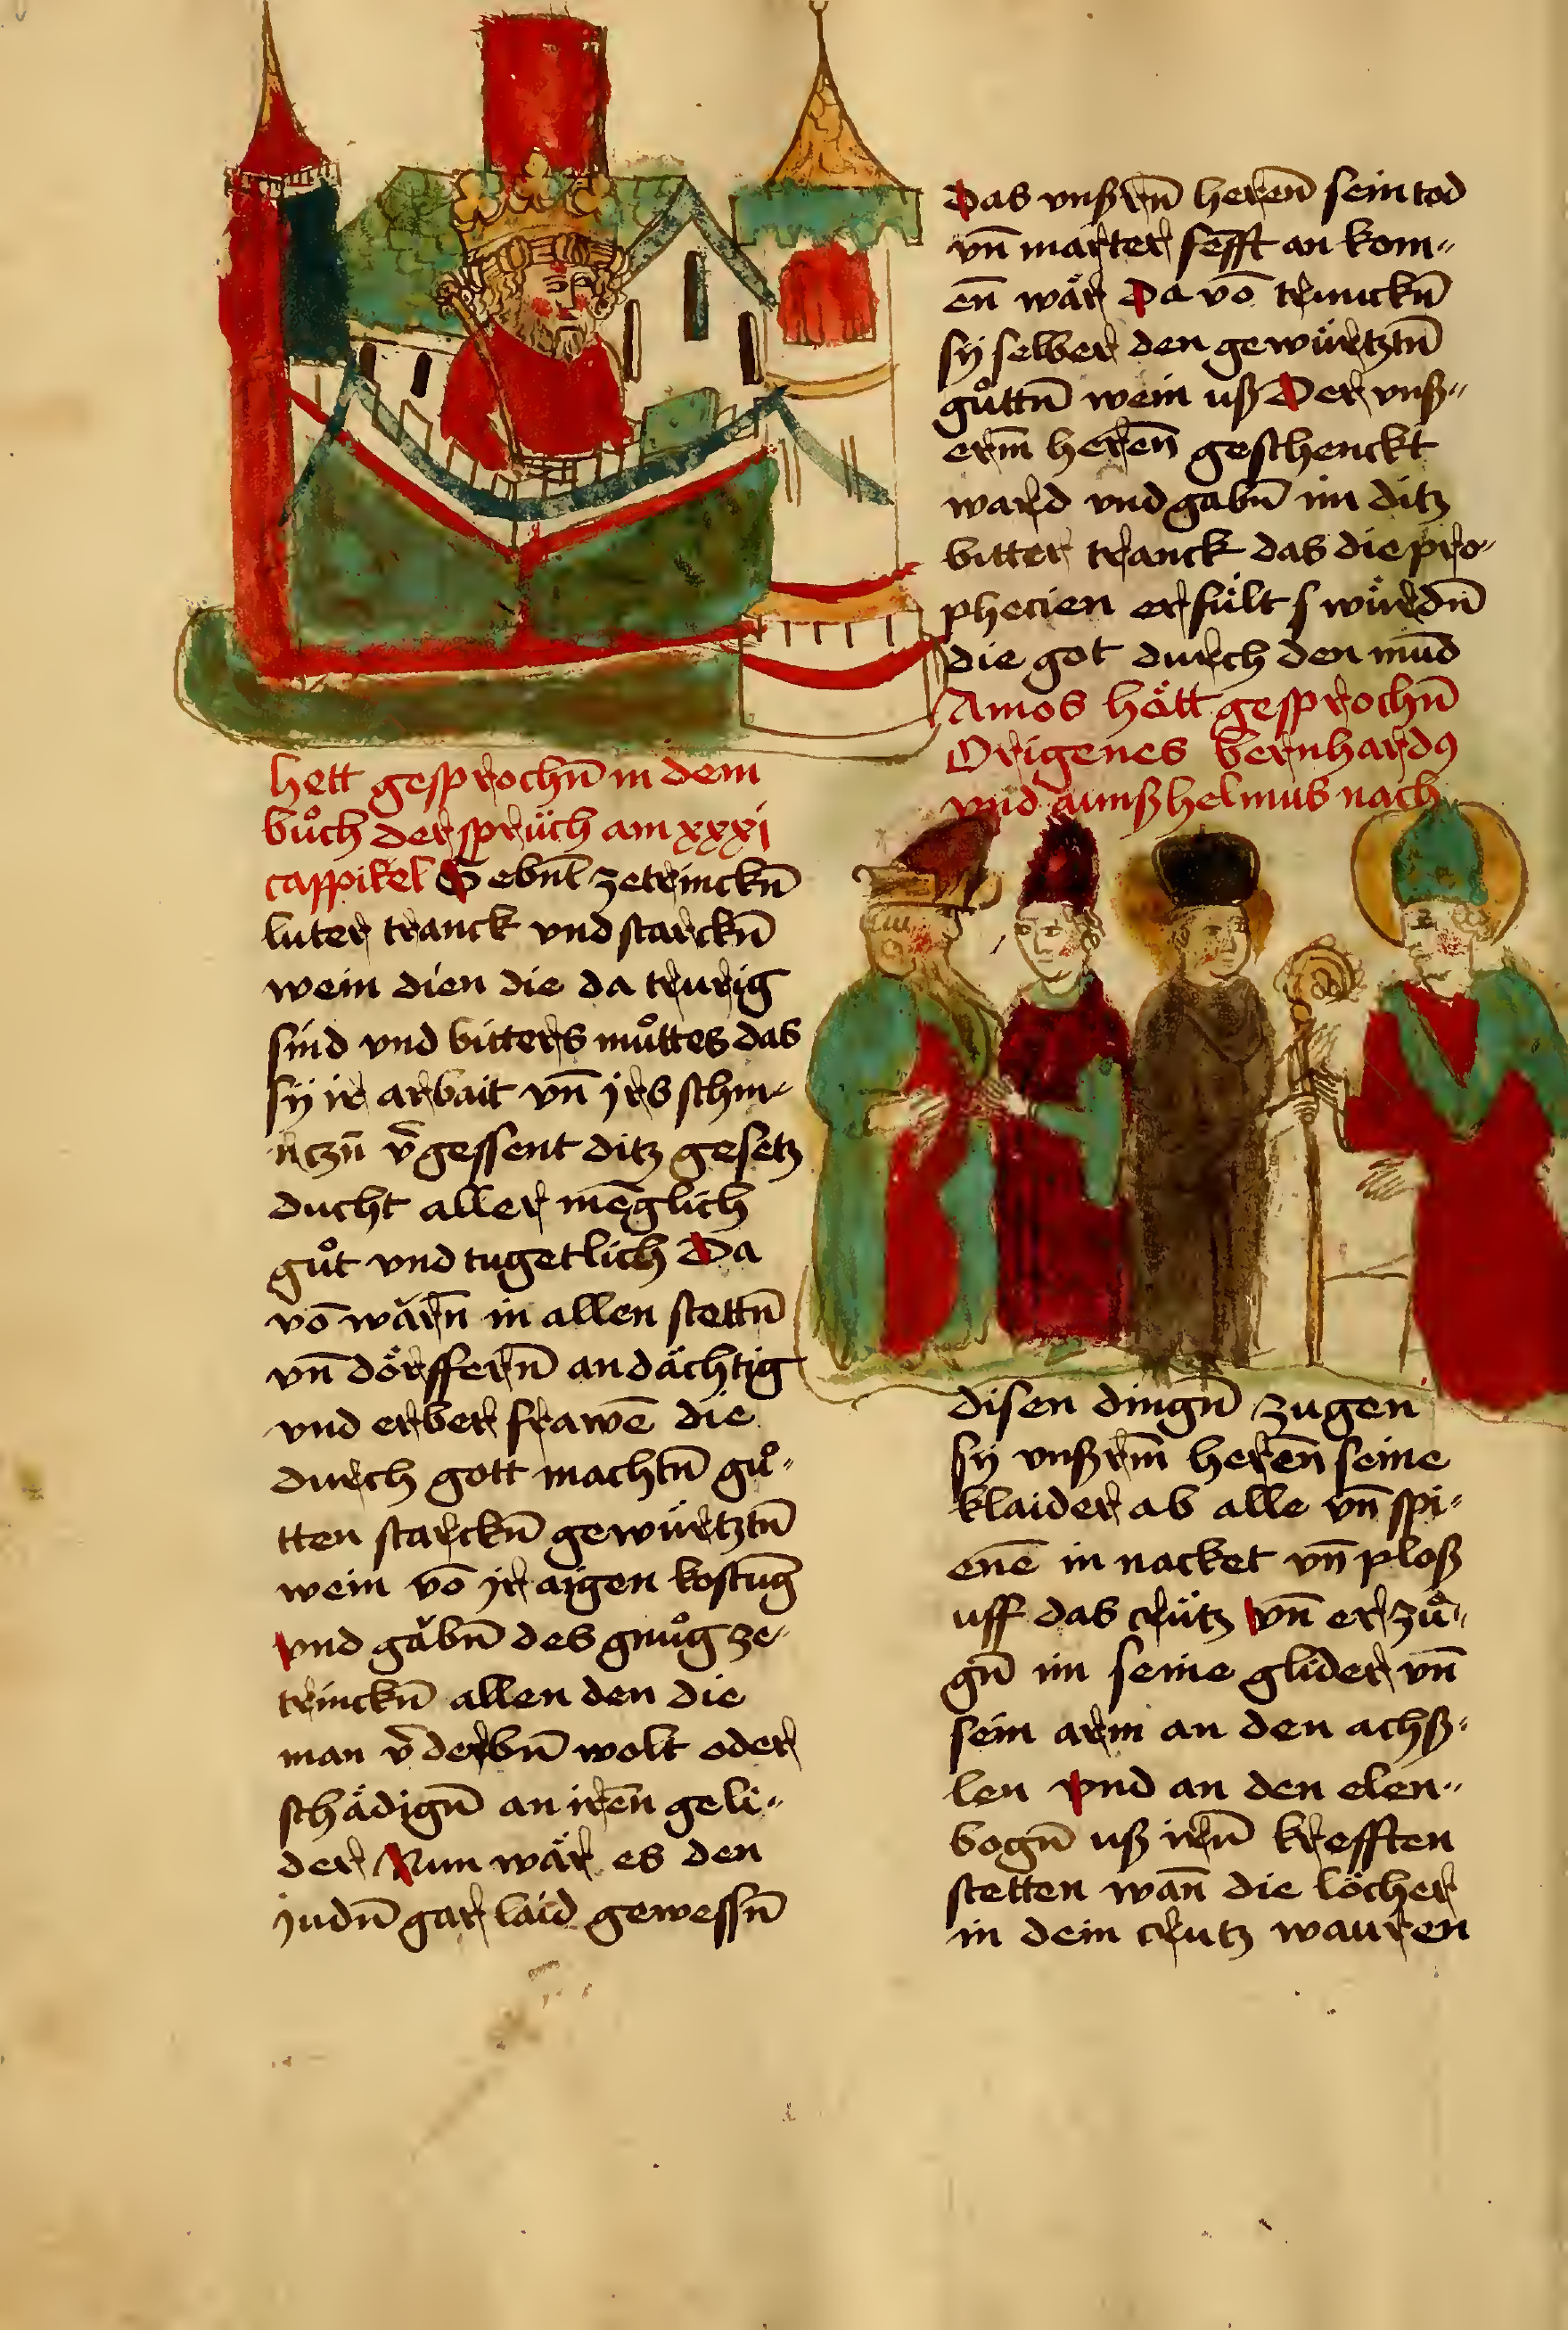 hett gesprochn̄ in dem
bůch der sprüch am xxxj
cappikel Gebnt zetrinckn̄
luter tranck vnd starckn̄
wein dien die da trurig
sind vnd bitters můttes das
sÿ ir arbait vn̄ jrs schm-
ertzn̄ v̄gessent ditz gesetz
ducht aller mēglich
gůt vnd tugetlich Da
vō wärn̄ in allen stettn̄
vn̄ dörffern̄ andächtig
vnd erber frawē die
durch gott machtn̄ gů-
tten starckn̄ gewürtztn̄
wein vō jr aigen kostung
vnd gäbn̄ des gnůg ze-
trinckn̄ allen den die
man v̄derbn̄ wolt oder
schädign̄ an iren̄ geli-
der Nun wär es den
judn̄ gar laid gewessn̄
Das vnßrn̄ heren̄ sein tod
vn̄ marter senfft an kom-
en̄ wär Da vō trincktn̄
sÿ selber den gewürtztn̄
gůttn̄ wein uß Der vnß-
erm̄ heren̄ geschenckt
ward vnd gabn̄ im ditz
bitter tranck das die pro-
phecien erfült s würdn̄
die got durch den mūd
Amos hätt gesprochn̄
Origenes bernhardꝯ
vnd aunßhelmus nach
disen dingn̄ zugen
sÿ vnßrm̄ heren̄ seine
klaider ab alle vn̄ spi-
enē in nacket vn̄ ploß
uff das crütz vn̄ er zů-
gn̄ im seine glider vn̄
sein arm an den achß-
len vnd an den elen-
bogn̄ uß irn̄ krefften
stetten wan̄ die löcher
in dem crutz wauren